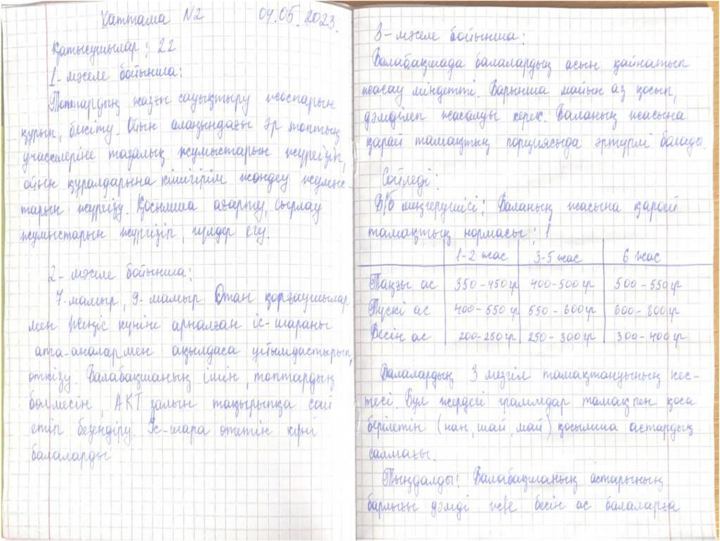 Хаттама №2 04.05.2023.
Қатысушылар: 22
1-мәселе бойынша:
Топтардың жазғы сауықтыру жоспарын
құрып, бекіту. Ойын алаңындағы әр топтың
учаскелеріне тазалық жұмыстарын жүргізіп,
ойын құралдарына кішігірім жөндеу жұмыс-
тарын жүргізу. Қосымша ағарту, сырлау
жұмыстарын жүргізіп, гүлдер егу.
2-мәселе бойынша:
7-мамыр, 9-мамыр Отан қорғаушылар
мен Жеңіс күніне арналған іс-шараны
ата-аналармен ақылдаса ұйымдастырып,
өткізу. Балабақшаның ішін, топтардың
бөлмесін, АКТ залын тақырыпқа сай
етіп безендіру. Іс-шара өтетін күні
балаларды
3-мәселе бойынша:
Балабақшада балалардың асын қайнатып
жасау міндетті. Барынша майын аз қосып,
дәмділеп жасалды керек. Баланың жасына
қарай тамақтың порциясыда әртүрлі болады.
Сөйледі:
Б/б меңгерушісі: Баланың жасына қарай
тамақтың нормасы:
1-2 жас 3-5 жас 6 жас
Таңғы ас 350-450гр 400-500гр 500-550гр
Түскі ас 400-550гр 550-600гр 600-800гр
Бесін ас 200-250гр 250-300гр 300-400гр
Балалардың 3 мезгіл тамақтануының кес-
тесі. Бұл жердегі граммдар тамақпен қоса
берілетін (нан, шай, май) қосымша астардың
салмағы.
Тыңдалды: Балабақшаның астарының
барлығы дәмді және бесін ас балаларға